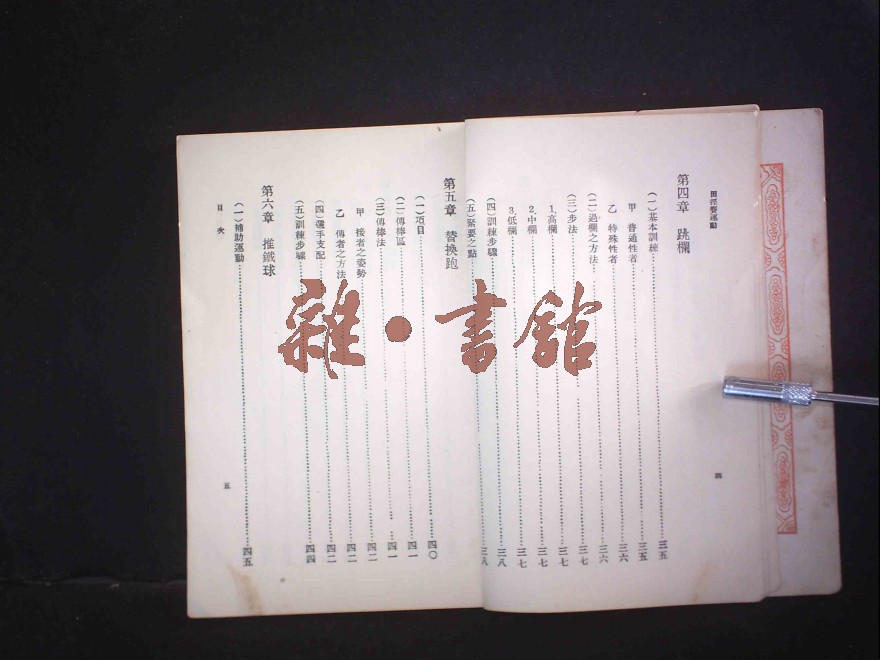 田徑賽運動
四
第四章 跳欄
(一)基本訓練……三五
甲 普通性者……三五
乙 特殊性者……三六
(二)過欄之方法……三六
(三)步法……三七
1.高欄……三七
2.中欄……三七
3.低欄……三七
(四)訓練步驟……三八
(五)緊要之點……三八
第五章 替換跑
(一)項目……四〇
(二)傳棒區……四一
(三)傳棒法……四一
甲 接者之姿勢……四二
乙 傳者之方法……四二
(四)選手支配……四二
(五)訓練步驟……四四
第六章 推鐵球
(一)補助運動……四五
目次
五
雜•書館